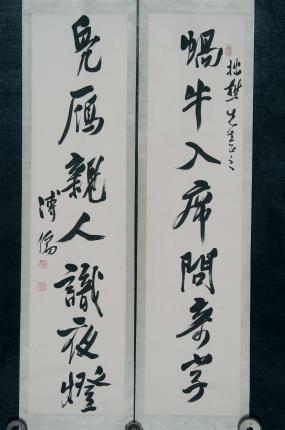 先生正之
蝸牛入席問奇字
鳧鴈親人識夜燈
溥儒